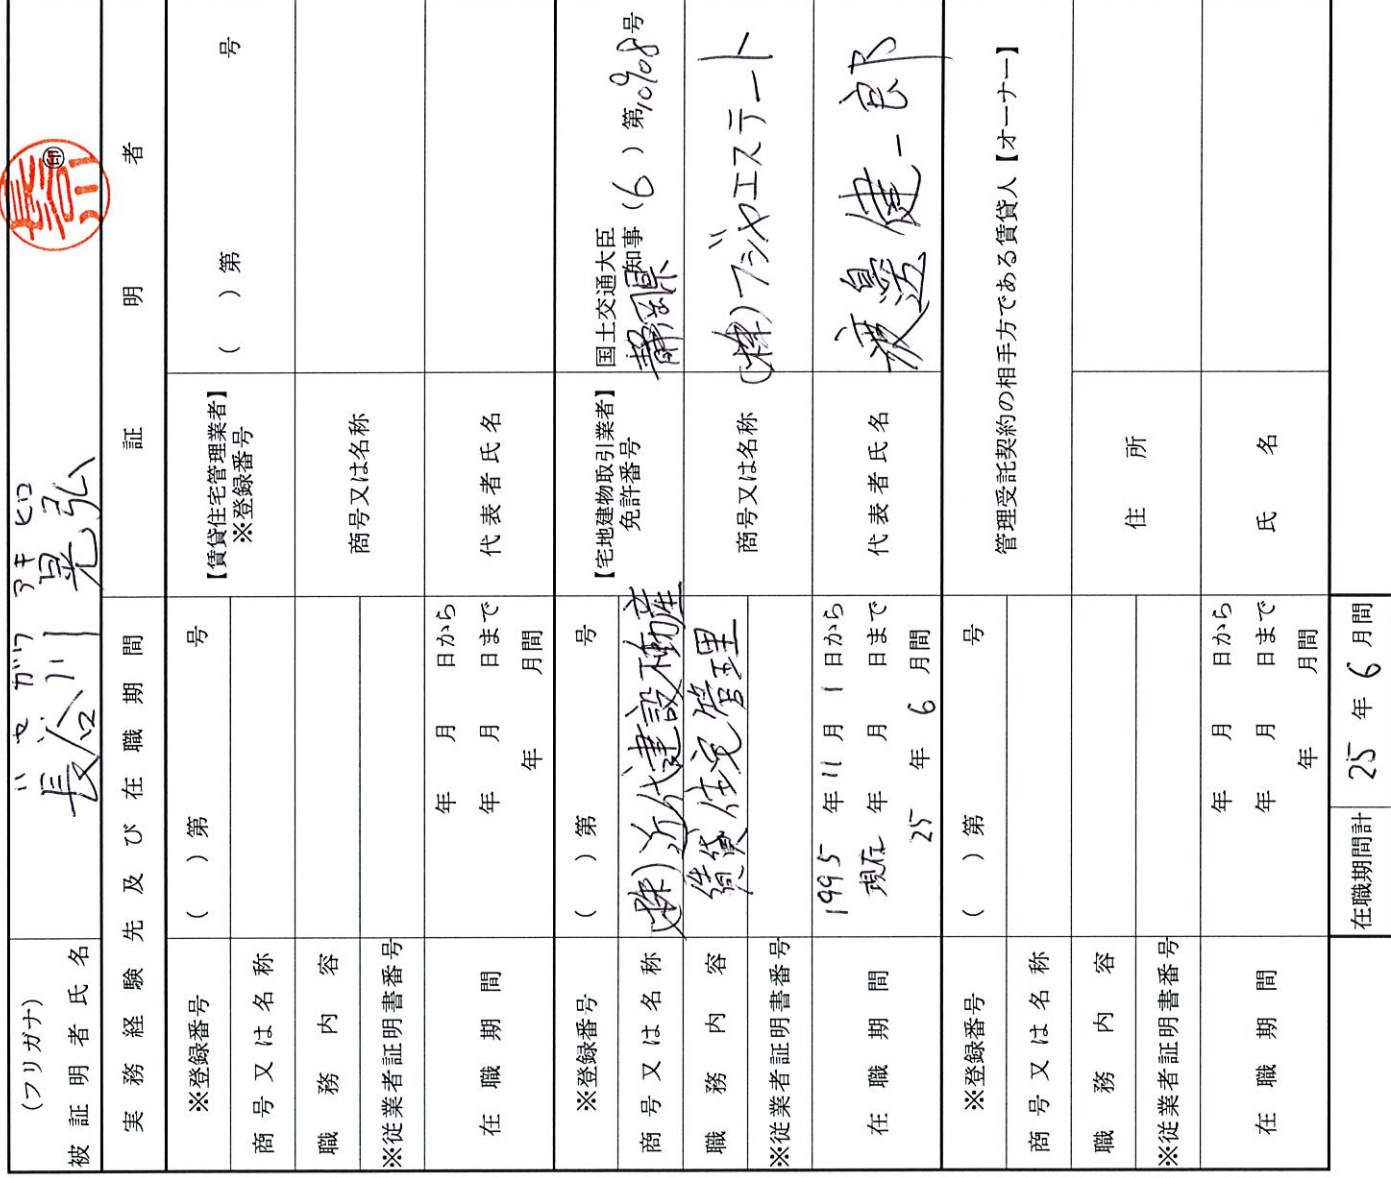 (フリガナ) ハセガワ アキヒロ
被証明者氏名 長谷川 晃弘 ㊞
実務経験先及び在職期間 証明者
※登録番号 ( )第 号 【賃貸住宅管理業者】 ※登録番号 ( )第 号
商号又は名称 商号又は名称
職務内容
※従業者証明書番号
在職期間 年 月 日から 代表者氏名
年 月 日まで
年 月間
※登録番号 ( )第 号 【宅地建物取引業者】 免許番号 国土交通大臣
静岡県知事 (6)第10908号
商号又は名称 (株)近代建設不動産 商号又は名称 (株)フジヤエステート
職務内容 賃貸住宅管理
※従業者証明書番号
在職期間 1995年11月1日から 代表者氏名 渡邉健一郎
現在 年 月 日まで
25年6月間
※登録番号 ( )第 号 管理受託契約の相手方である賃貸人【オーナー】
商号又は名称
職務内容 住所
※従業者証明書番号
在職期間 年 月 日から 氏名
年 月 日まで
年 月間
在職期間計 25年6月間